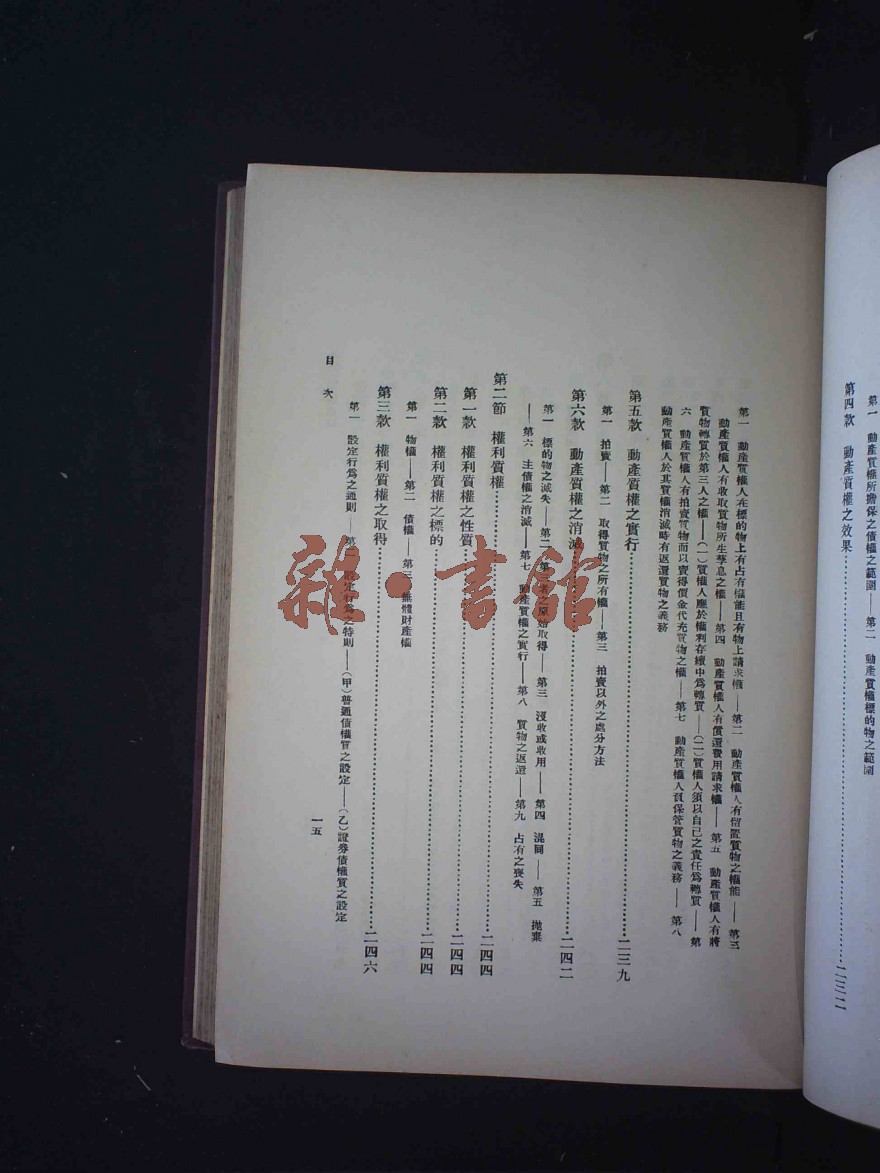 第四款 動產質權之效果……二三二
第一 動產質權所擔保之債權之範圍——第二 動產質權標的物之範圍
第一 動產質權人在標的物上有占有權能且有物上請求權——第二 動產質權人有留置質物之權能——第三
動產質權人有收取質物所生孳息之權——第四 動產質權人有償還費用請求權——第五 動產質權人有將
質物轉質於第三人之權——(一)質權人應於權利存續中爲轉質——(二)質權人須以自己之責任爲轉質——第
六 動產質權人有拍賣質物而以賣得價金代充質物之權——第七 動產質權人負保管質物之義務——第八
動產質權人於其質權消滅時有返還質物之義務
第五款 動產質權之實行……二三九
第一 拍賣——第二 取得質物之所有權——第三 拍賣以外之處分方法
第六款 動產質權之消滅……二四二
第一 標的物之滅失——第二 第三者之原始取得——第三 沒收或收用——第四 混同——第五 拋棄
——第六 主債權之消滅——第七 動產質權之實行——第八 質物之返還——第九 占有之喪失
第二節 權利質權……二四四
第一款 權利質權之性質……二四四
第二款 權利質權之標的……二四四
第一 物權——第二 債權——第三 無體財產權
第三款 權利質權之取得……二四六
第一 設定行爲之通則——第二 設定行爲之特則——(甲)普通債權質之設定——(乙)證券債權質之設定
目次
一五
雜·書館